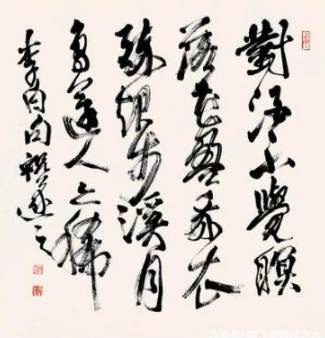 對酒不覺暝
落花盈我衣
醉起步溪月
鳥還人亦稀
李白句之